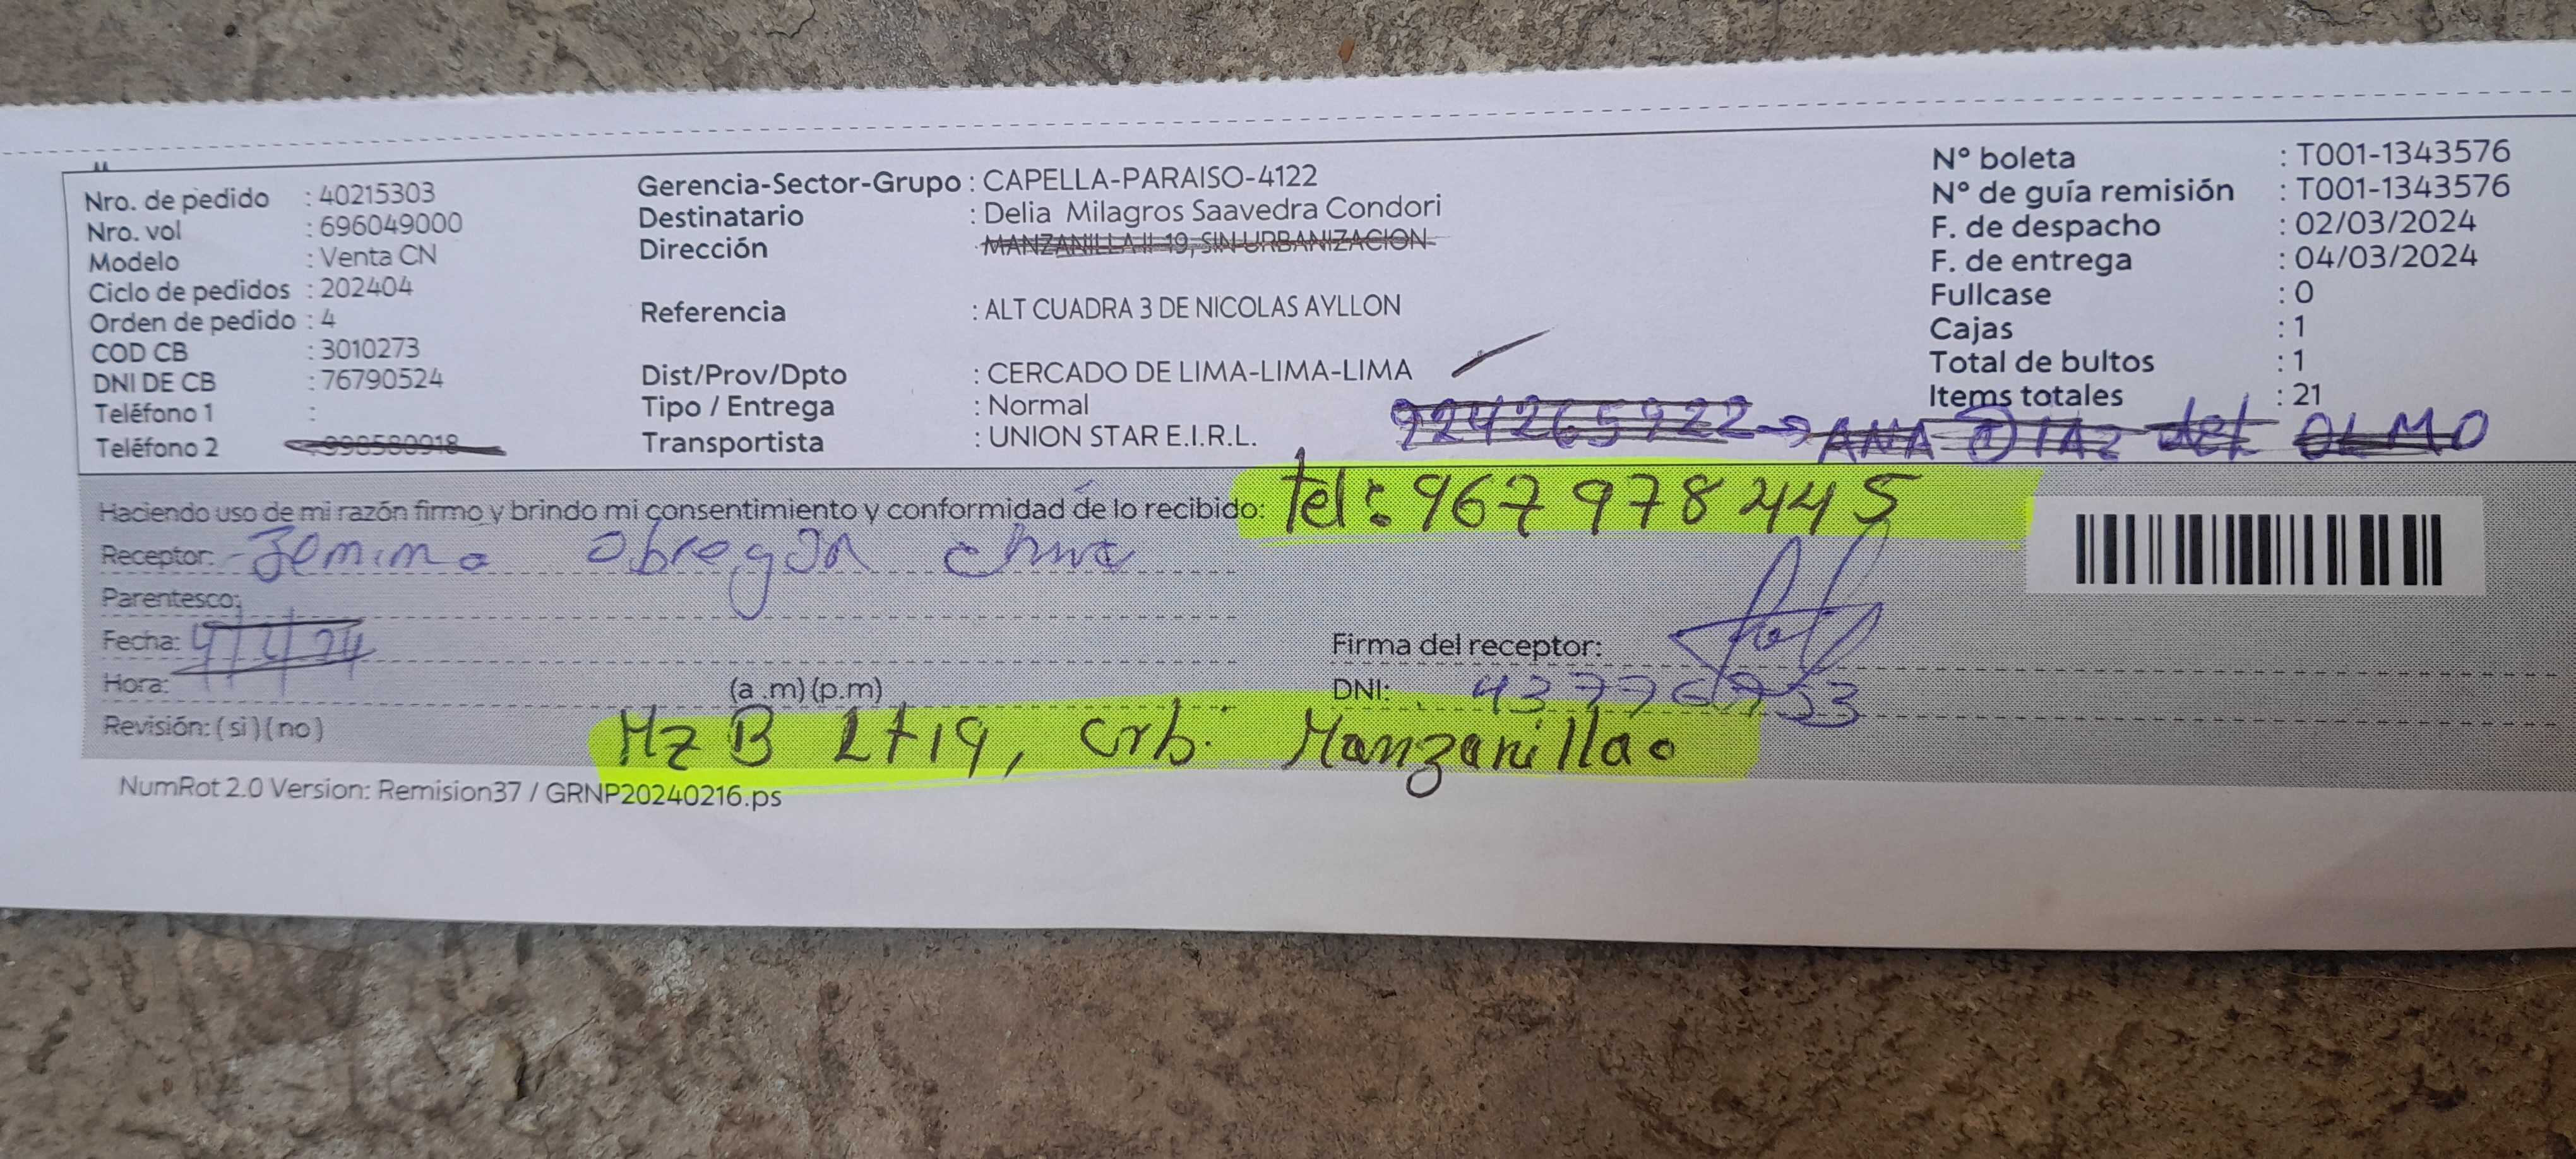 Nro. de pedido : 40215303
Nro. vol : 696049000
Modelo : Venta CN
Ciclo de pedidos : 202404
Orden de pedido : 4
COD CB : 3010273
DNI DE CB : 76790524
Teléfono 1 :
Teléfono 2 : 998580918
Gerencia-Sector-Grupo : CAPELLA-PARAISO-4122
Destinatario : Delia Milagros Saavedra Condori
Dirección : MANZANILLA II 19, SIN URBANIZACION
Referencia : ALT CUADRA 3 DE NICOLAS AYLLON
Dist/Prov/Dpto : CERCADO DE LIMA-LIMA-LIMA
Tipo / Entrega : Normal
Transportista : UNION STAR E.I.R.L.
N° boleta : T001-1343576
N° de guía remisión : T001-1343576
F. de despacho : 02/03/2024
F. de entrega : 04/03/2024
Fullcase : 0
Cajas : 1
Total de bultos : 1
Items totales : 21
924265922 → ANA DIAZ del OLMO
Haciendo uso de mi razón firmo y brindo mi consentimiento y conformidad de lo recibido: tel: 967 978 445
Receptor: Jemima Obregon
Parentesco:
Fecha:
Firma del receptor:
Hora: (a .m) (p.m)
DNI: 43776753
Revisión: ( si ) ( no )
Mz B Lt 19, Urb. Manzanilla
NumRot 2.0 Version: Remision37 / GRNP20240216.ps